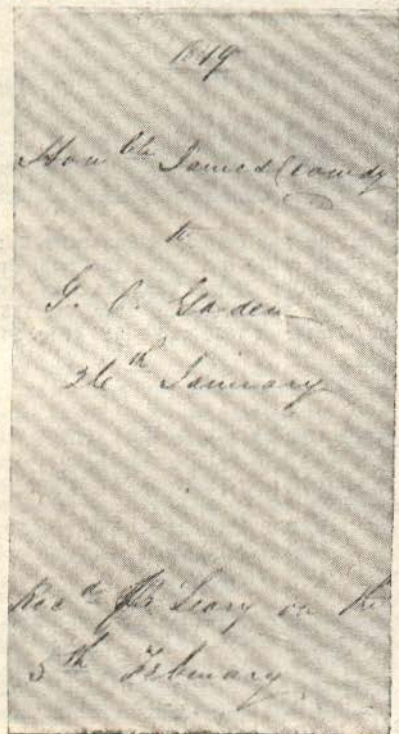 1849
Hon ble James Crowdy
to
G. C. Gaden
26th January
Rec d Leary on the
5th February